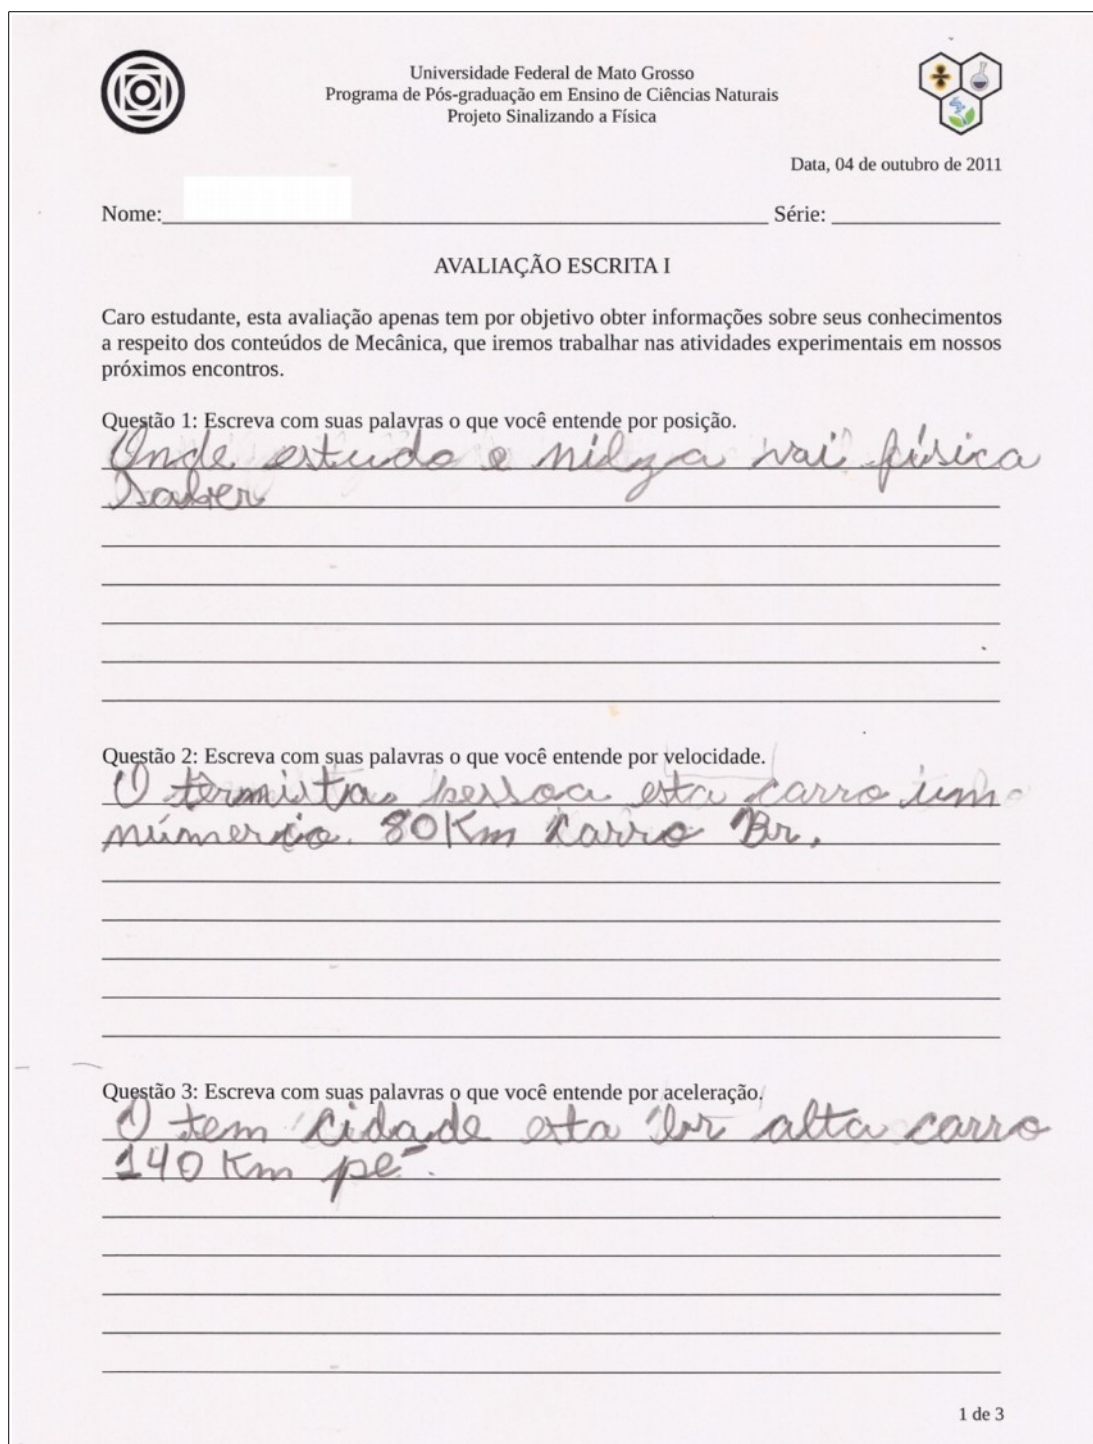 Universidade Federal de Mato Grosso
Programa de Pós-graduação em Ensino de Ciências Naturais
Projeto Sinalizando a Física
Data, 04 de outubro de 2011
Nome: Série:
AVALIAÇÃO ESCRITA I
Caro estudante, esta avaliação apenas tem por objetivo obter informações sobre seus conhecimentos
a respeito dos conteúdos de Mecânica, que iremos trabalhar nas atividades experimentais em nossos
próximos encontros.
Questão 1: Escreva com suas palavras o que você entende por posição.
Onde estudo e nilza vai física
saber
Questão 2: Escreva com suas palavras o que você entende por velocidade.
O pessoa esta carro um
80Km carro Br.
Questão 3: Escreva com suas palavras o que você entende por aceleração.
O tem cidade esta alta carro
140 Km pé.
1 de 3